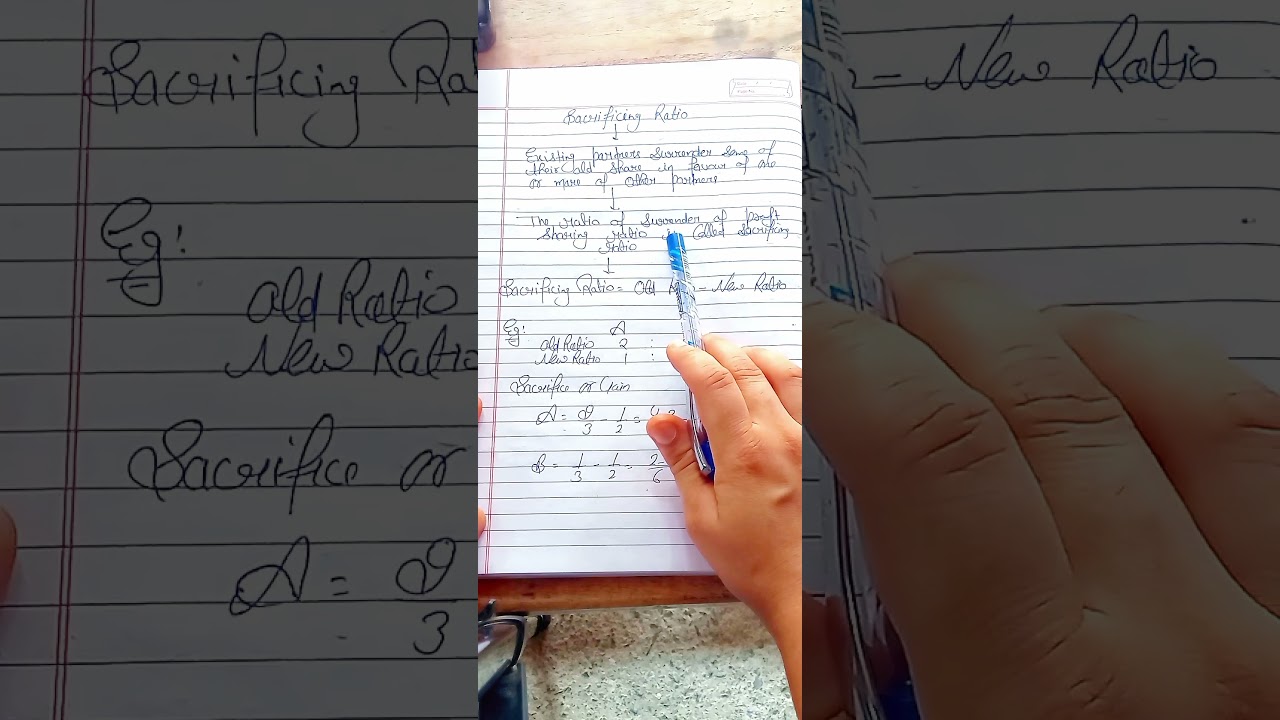 Sacrificing Ratio
Existing partners surrender some of
their old share in favour of one
or more of other partners
The ratio of surrender of profit
sharing ratio is called sacrificing
ratio
Sacrificing Ratio = Old - New Ratio
Eg: A
Old Ratio 2 :
New Ratio 1 :
Sacrifice or Gain
A = 2/3 - 1/2 =
B = 1/3 - 1/2 = 2/6